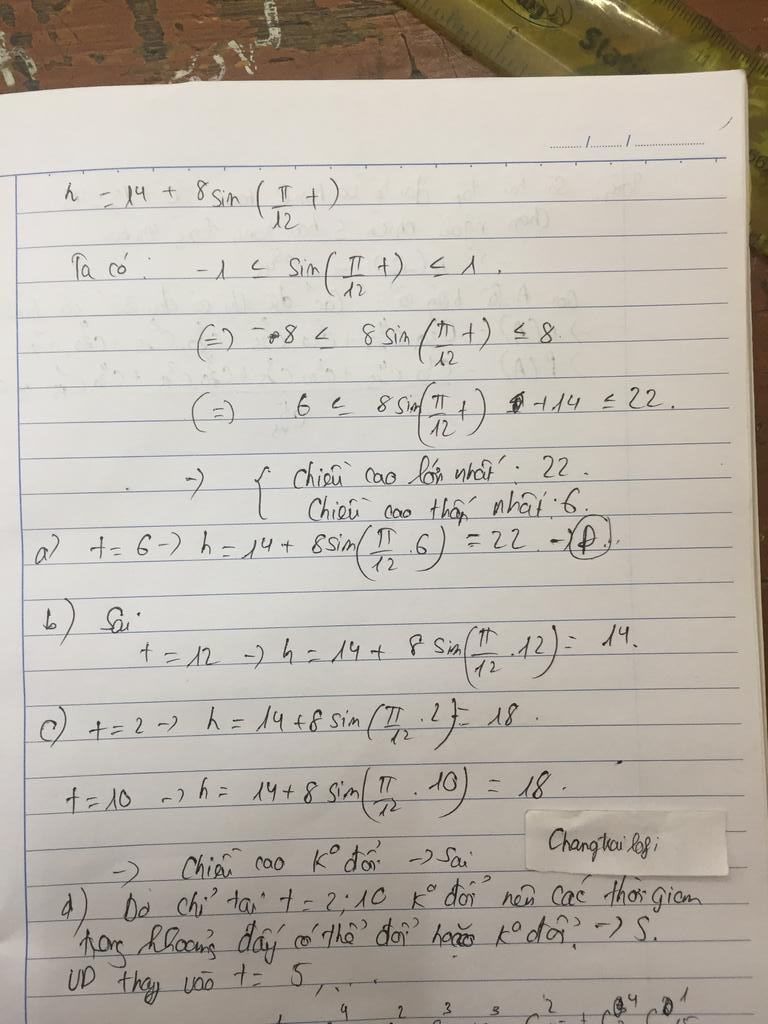 h = 14 + 8 sin (π/12 t)
Ta có: -1 ≤ sin(π/12 t) ≤ 1.
(=) -8 ≤ 8 sin(π/12 t) ≤ 8.
(=) 6 ≤ 8 sin(π/12 t) +14 ≤ 22.
→ { Chiều cao lớn nhất: 22.
Chiều cao thấp nhất: 6.
a) t = 6 → h = 14 + 8sin(π/12 . 6) = 22 → Đ.
b) Sai
t = 12 → h = 14 + 8 sin(π/12 . 12) = 14.
c) t = 2 → h = 14 + 8 sin(π/12 . 2) = 18.
t = 10 → h = 14 + 8 sin(π/12 . 10) = 18.
→ Chiều cao k° đổi → Sai
Changtrailofi
d) Do chỉ tại t = 2; 10 k° đổi nên các thời gian
trong khoảng đấy có thể đổi hoặc k° đổi. → S.
VD thay vào t = 5, ...